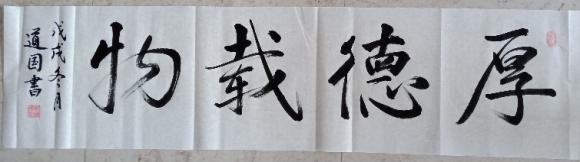 厚德载物
戊戌冬月
道国書